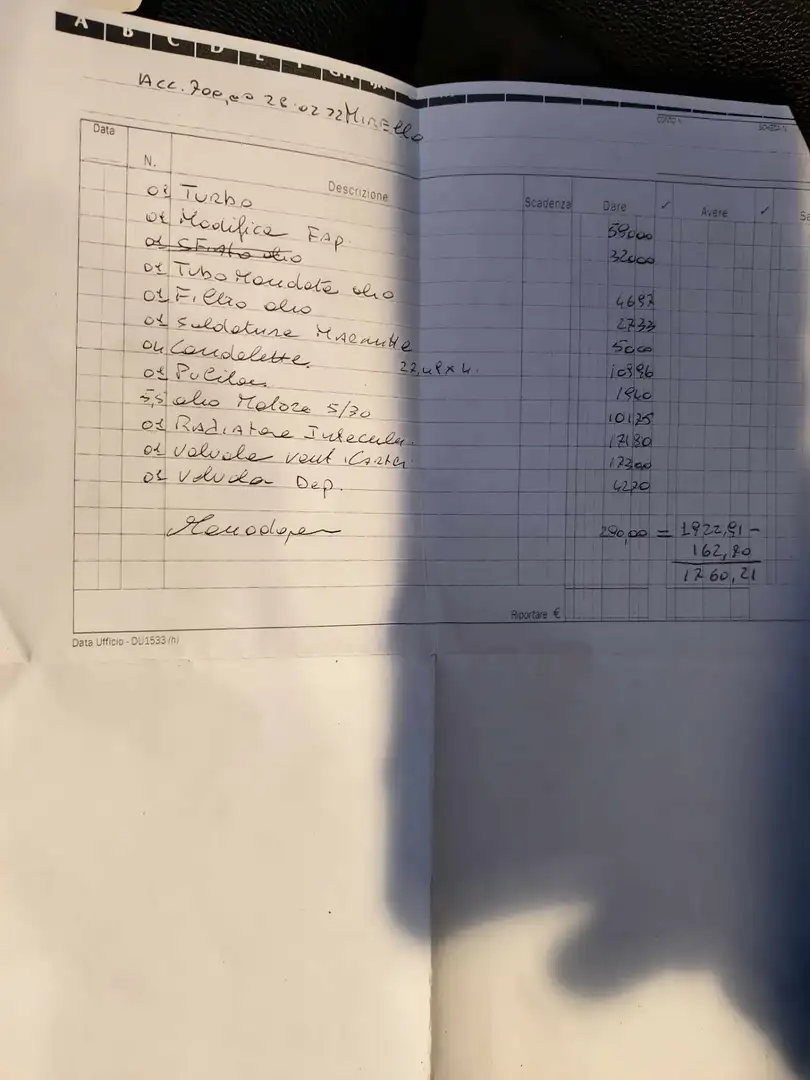 A B C D E F
Acc. 700,00 28.02 22 Mirello
Data N. Descrizione Scadenza Dare ✓ Avere ✓ Sa
01 Turbo 59000
01 Modifica FAP 32000
01 olio
01 Tubo Mandata olio 4697
01 Filtro olio 2733
01 Saldatura Marmitta 5000
04 Candelette. 22,49 x 4. 10996
01 1940
5,5 olio Motore 5/30 10175
01 Radiatore Intercooler 17180
01 Valvola vent. Carter 17300
01 Valvola Dep. 4220
Manodopera 290,00 = 1922,91 -
162,70
1760,21
Riportare €
Data Ufficio - DU1533 (h)